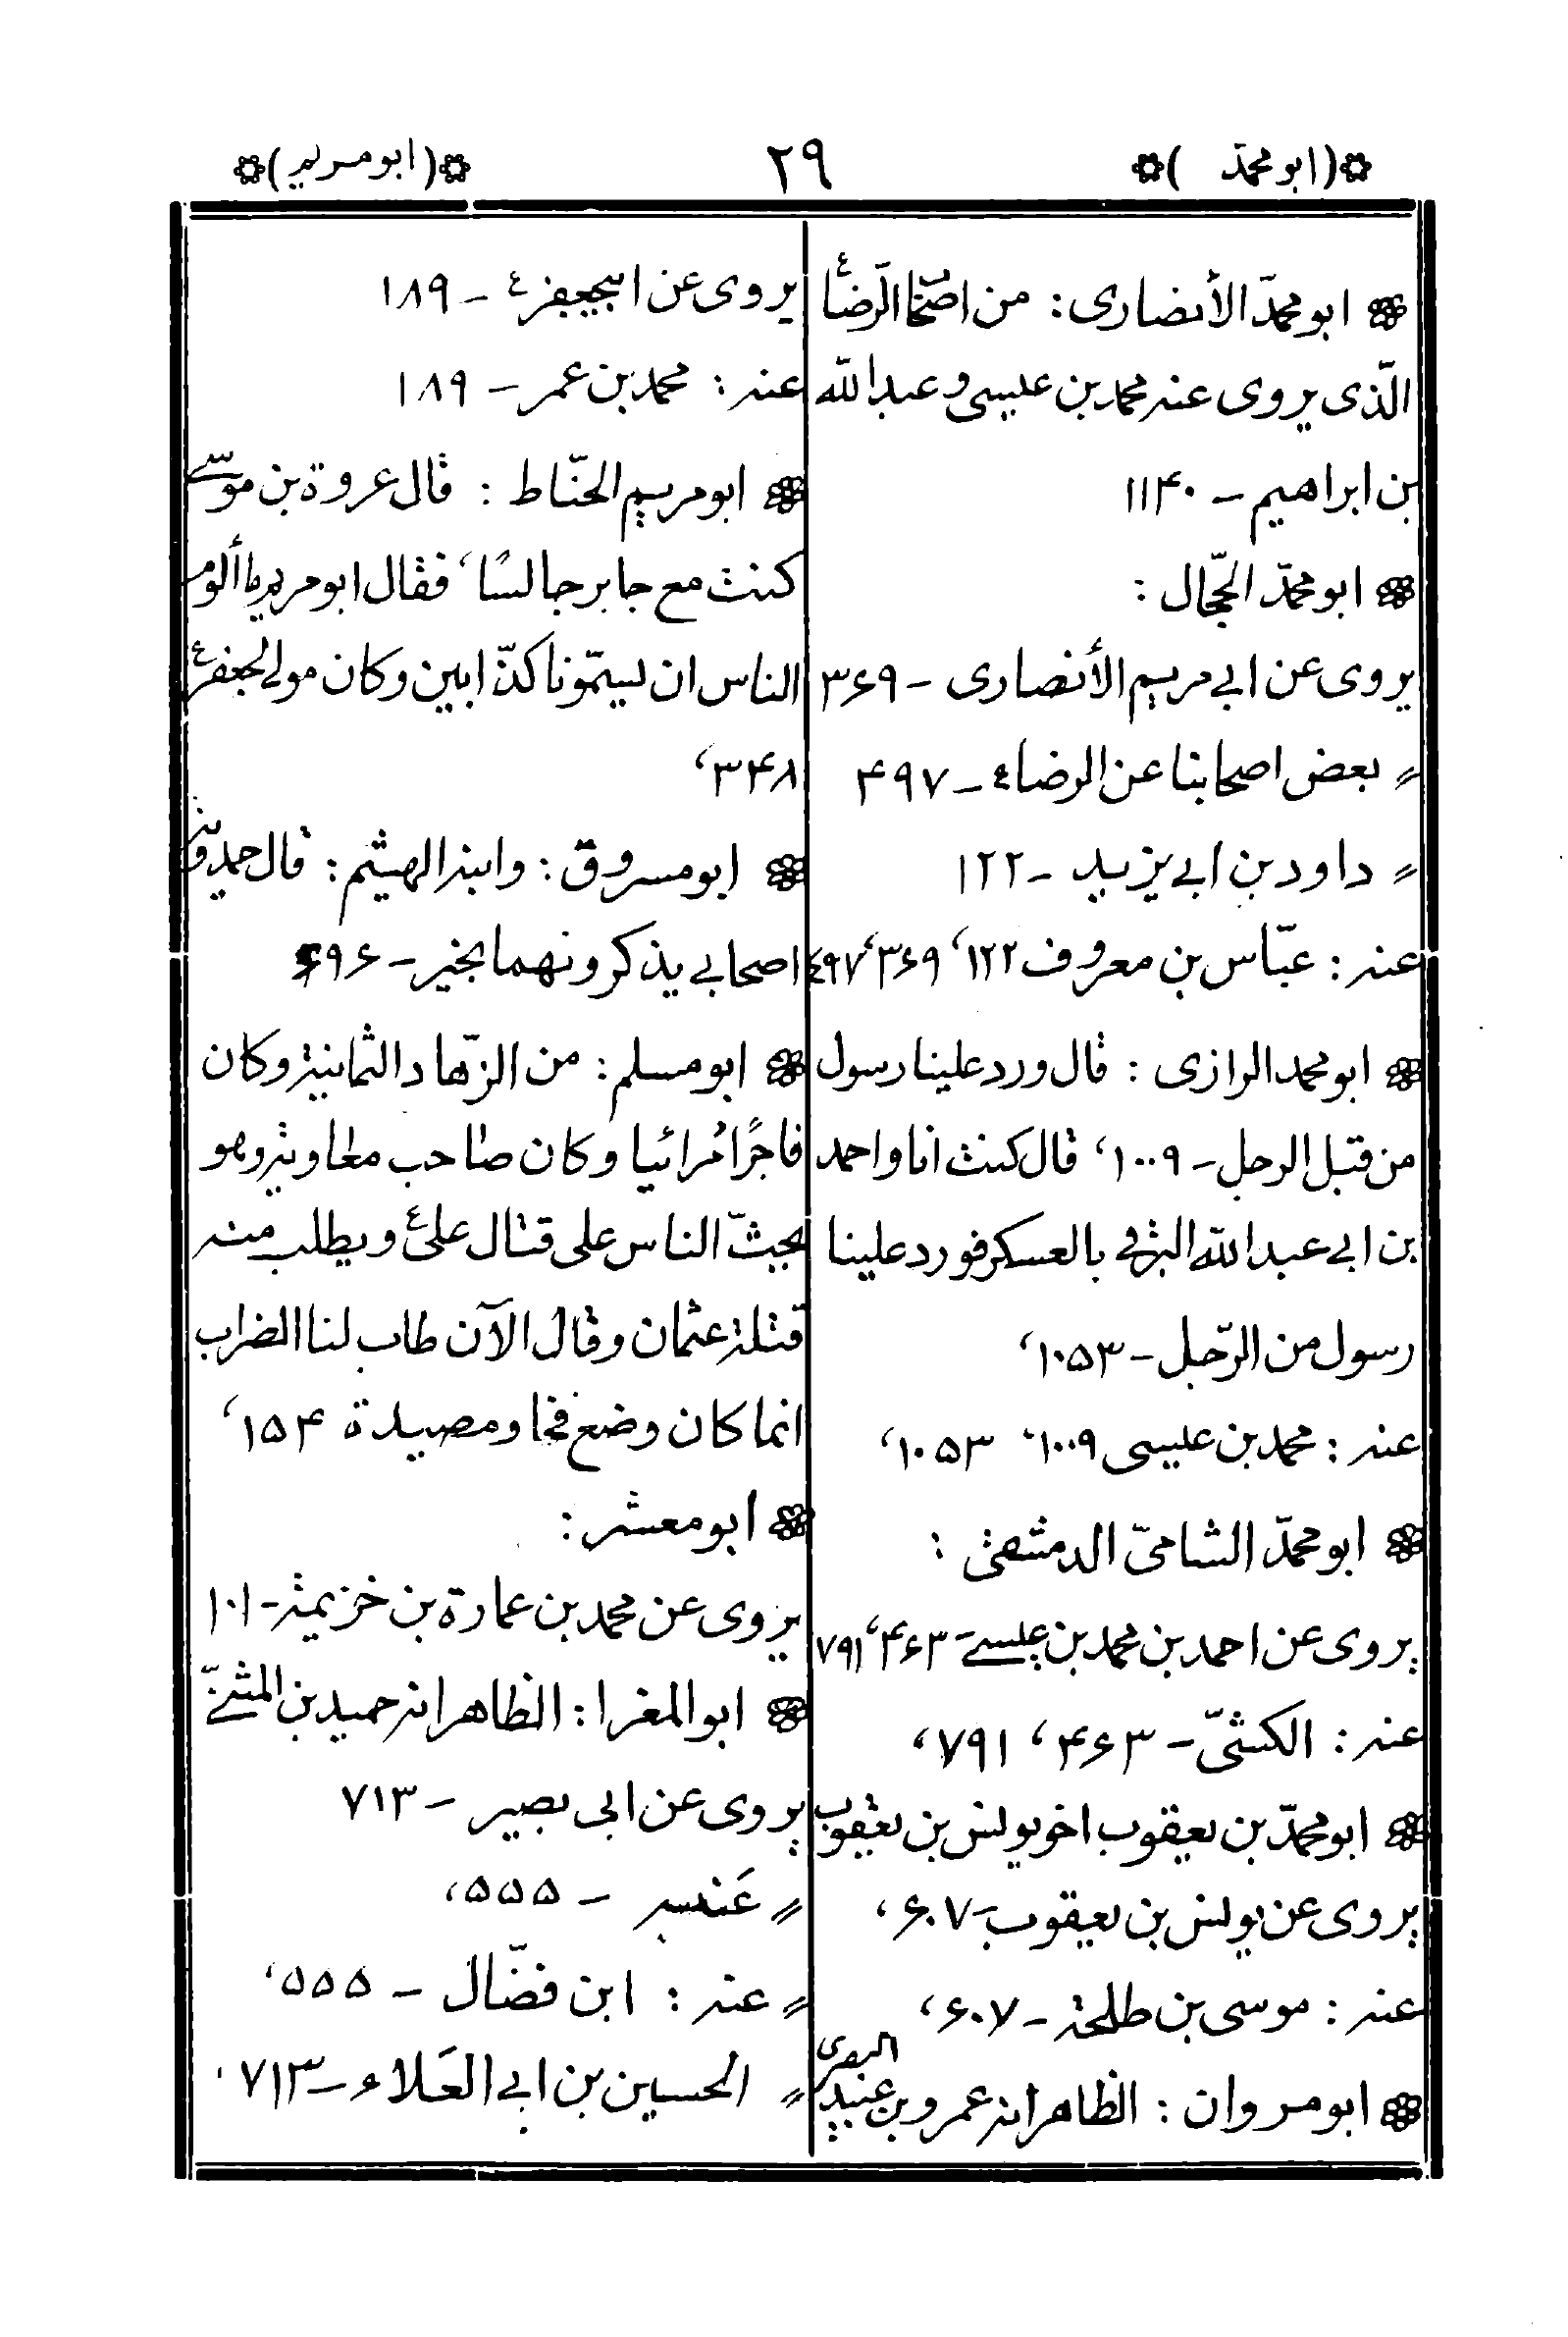 (ابو محمّد)
۲۹
(ابو مريم)
ابو محمّد الأنصارى : من اصحٰاب الرّضاء
الّذى يروى عنه محمد بن عيسى وعبد الله
بن ابراهيم - ۱۱۴۰
ابو محمّد الحجّال :
يروى عن ابي مريم الأنصارى - ۳۶۹
〃 بعض اصحابنا عن الرضاء - ۴۹۷
〃 داود بن ابي يزيد - ۱۲۲
عنه : عبّاس بن معروف ۱۲۲، ۳۶۹، ۴۹۷
ابو محمد الرازى : قال ورد علينا رسول
من قبل الرجل - ۱۰۰۹، قال كنت انا واحمد
بن ابي عبد الله البرقي بالعسكر فورد علينا
رسول من الرّجل - ۱۰۵۳،
عنه : محمد بن عيسى ۱۰۰۹، ۱۰۵۳،
ابو محمّد الشامىّ الدمشقى :
يروى عن احمد بن محمد بن عيسى - ۴۶۳، ۷۹۱
عنه : الكشّىّ - ۴۶۳، ۷۹۱،
ابو محمّد بن يعقوب اخو يونس بن يعقوب
يروى عن يونس بن يعقوب - ۶۰۷،
عنه : موسى بن طلحة - ۶۰۷،
ابو مروان : الظاهر انه عمرو بن عبيد البصرى
يروى عن ابيجعفر ع - ۱۸۹
عنه : محمد بن عمر - ۱۸۹
ابو مريم الحنّاط : قال عروة بن موسى
كنت مع جابر جالسًا، فقال ابو مريم ما ألوم
الناس ان يسمّونا كذّابين وكان مولى لجعفر ع
۳۴۸،
ابو مسروق : وابنه الهيثم : قال حمدويه
اصحابي يذكرونهما بخير - ۶۹۶
ابو مسلم : من الزّهاد الثمانية وكان
فاجرًا مُرائيا وكان صاحب معاوية وهو
يحثّ الناس على قتال علىّ ع ويطلب منه
قتلة عثمان وقال الآن طاب لنا الضراب
انما كان وضع فخا ومصيدة ۱۵۴،
ابو معشر :
يروى عن محمد بن عمارة بن خزيمة - ۱۰۱
ابو المغرا : الظاهر انه حميد بن المثنّى
يروى عن ابى بصير - ۷۱۳
〃 عَنبسه - ۵۵۵،
〃 عنه : ابن فضّال - ۵۵۵،
〃 الحسين بن ابي العَلاء - ۷۱۳،